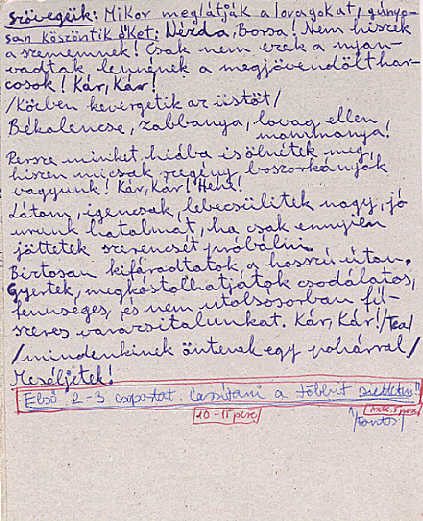 Szövegük: Mikor meglátják a lovagokat, gúnyo-
san köszöntik őket: Nézda, Borsa! Nem hiszek
a szememnek! Csak nem ezek a nyam-
vadtak lennének a megjövendölt har-
cosok! Kár, Kár!
/Közben kevergetik az üstöt/
Békalencse, zabbanya, lovag ellen
mammanya!
Persze minket hiába is ölnétek meg,
hiszen mi csak szegény boszorkányok
vagyunk! Kár, Kár! Hehe!
Látom, igencsak lebecsülitek nagy, jó
urunk hatalmát, ha csak ennyien
jöttetek szerencsét próbálni.
Biztosan kifáradtatok a hosszú úton.
Gyertek, megkóstolhatjátok csodálatos,
fenséges, és nem utolsósorban fű-
szeres varázsitalunkat. Kár, Kár! /Tea/
/mindenkinek öntenek egy pohárral/
Meséljetek!
Első 2-3 csoportot lassítani a többit
10-15 perc
5 perc
/Fontos/